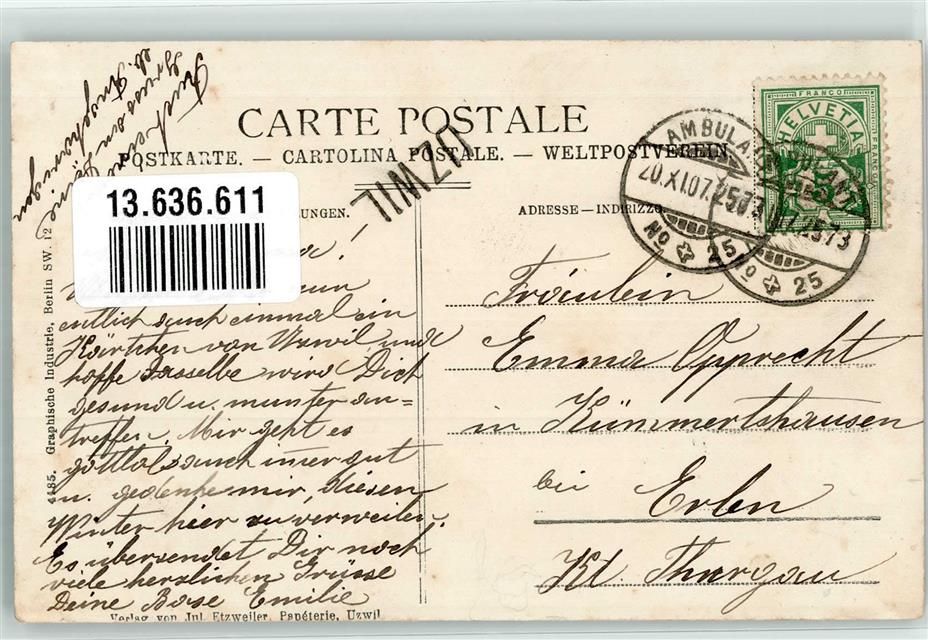 CARTE POSTALE
POSTKARTE. — CARTOLINA POSTALE. — WELTPOSTVEREIN.
UZWIL
13.636.611
UNGEN.
ADRESSE — INDIRIZZO
FRANCO
HELVETIA
FRANCO
5
AMBULANT
20.XI.07. 2573
No 25
AMBULANT
07. 2573
No 25
entlich auch einmal ein
Kärtchen von Uzwil und
hoffe dasselbe wird Dich
gesund u. munter an=
treffen. Mir geht es
gottlob auch imer gut
u. gedenke mir, diesen
Winter hier zu verweilen.
Es übersendet Dir noch
viele herzlichen Grüsse
Deine Base Emilie
Fräulein
Emma Opprecht
in Kümmertshausen
bei Erlen
Kt Thurgau
4485. Graphische Industrie, Berlin SW. 12
Verlag von Jul. Etzweiler, Papéterie, Uzwil